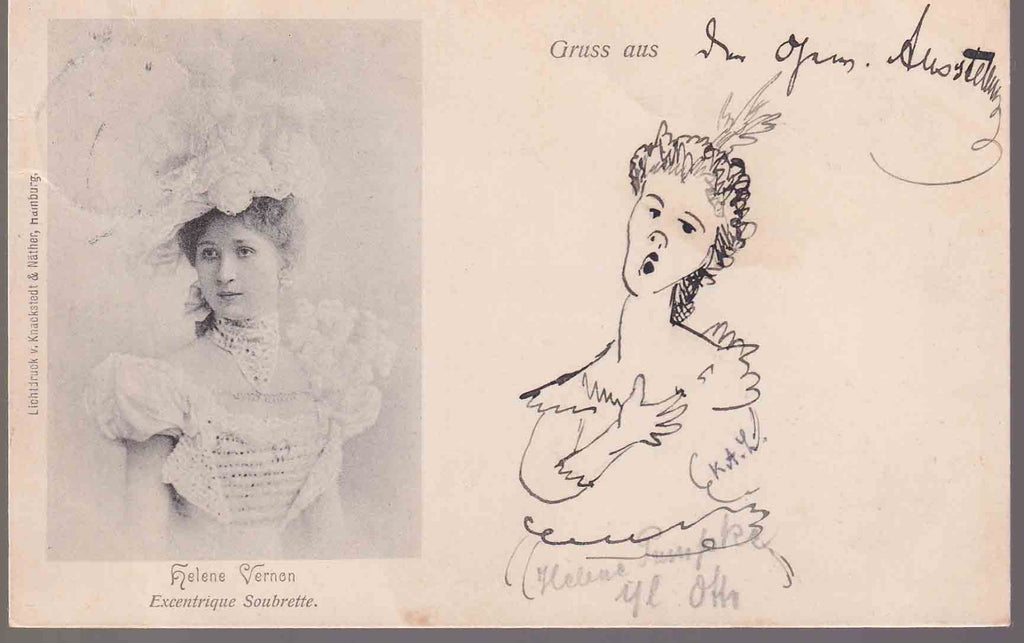 Gruss aus der Gem. Ausstellung
Lichtdruck v. Knackstedt & Näther, Hamburg.
K.A.L.
Helene Vernon
Excentrique Soubrette.
Helene
Otto